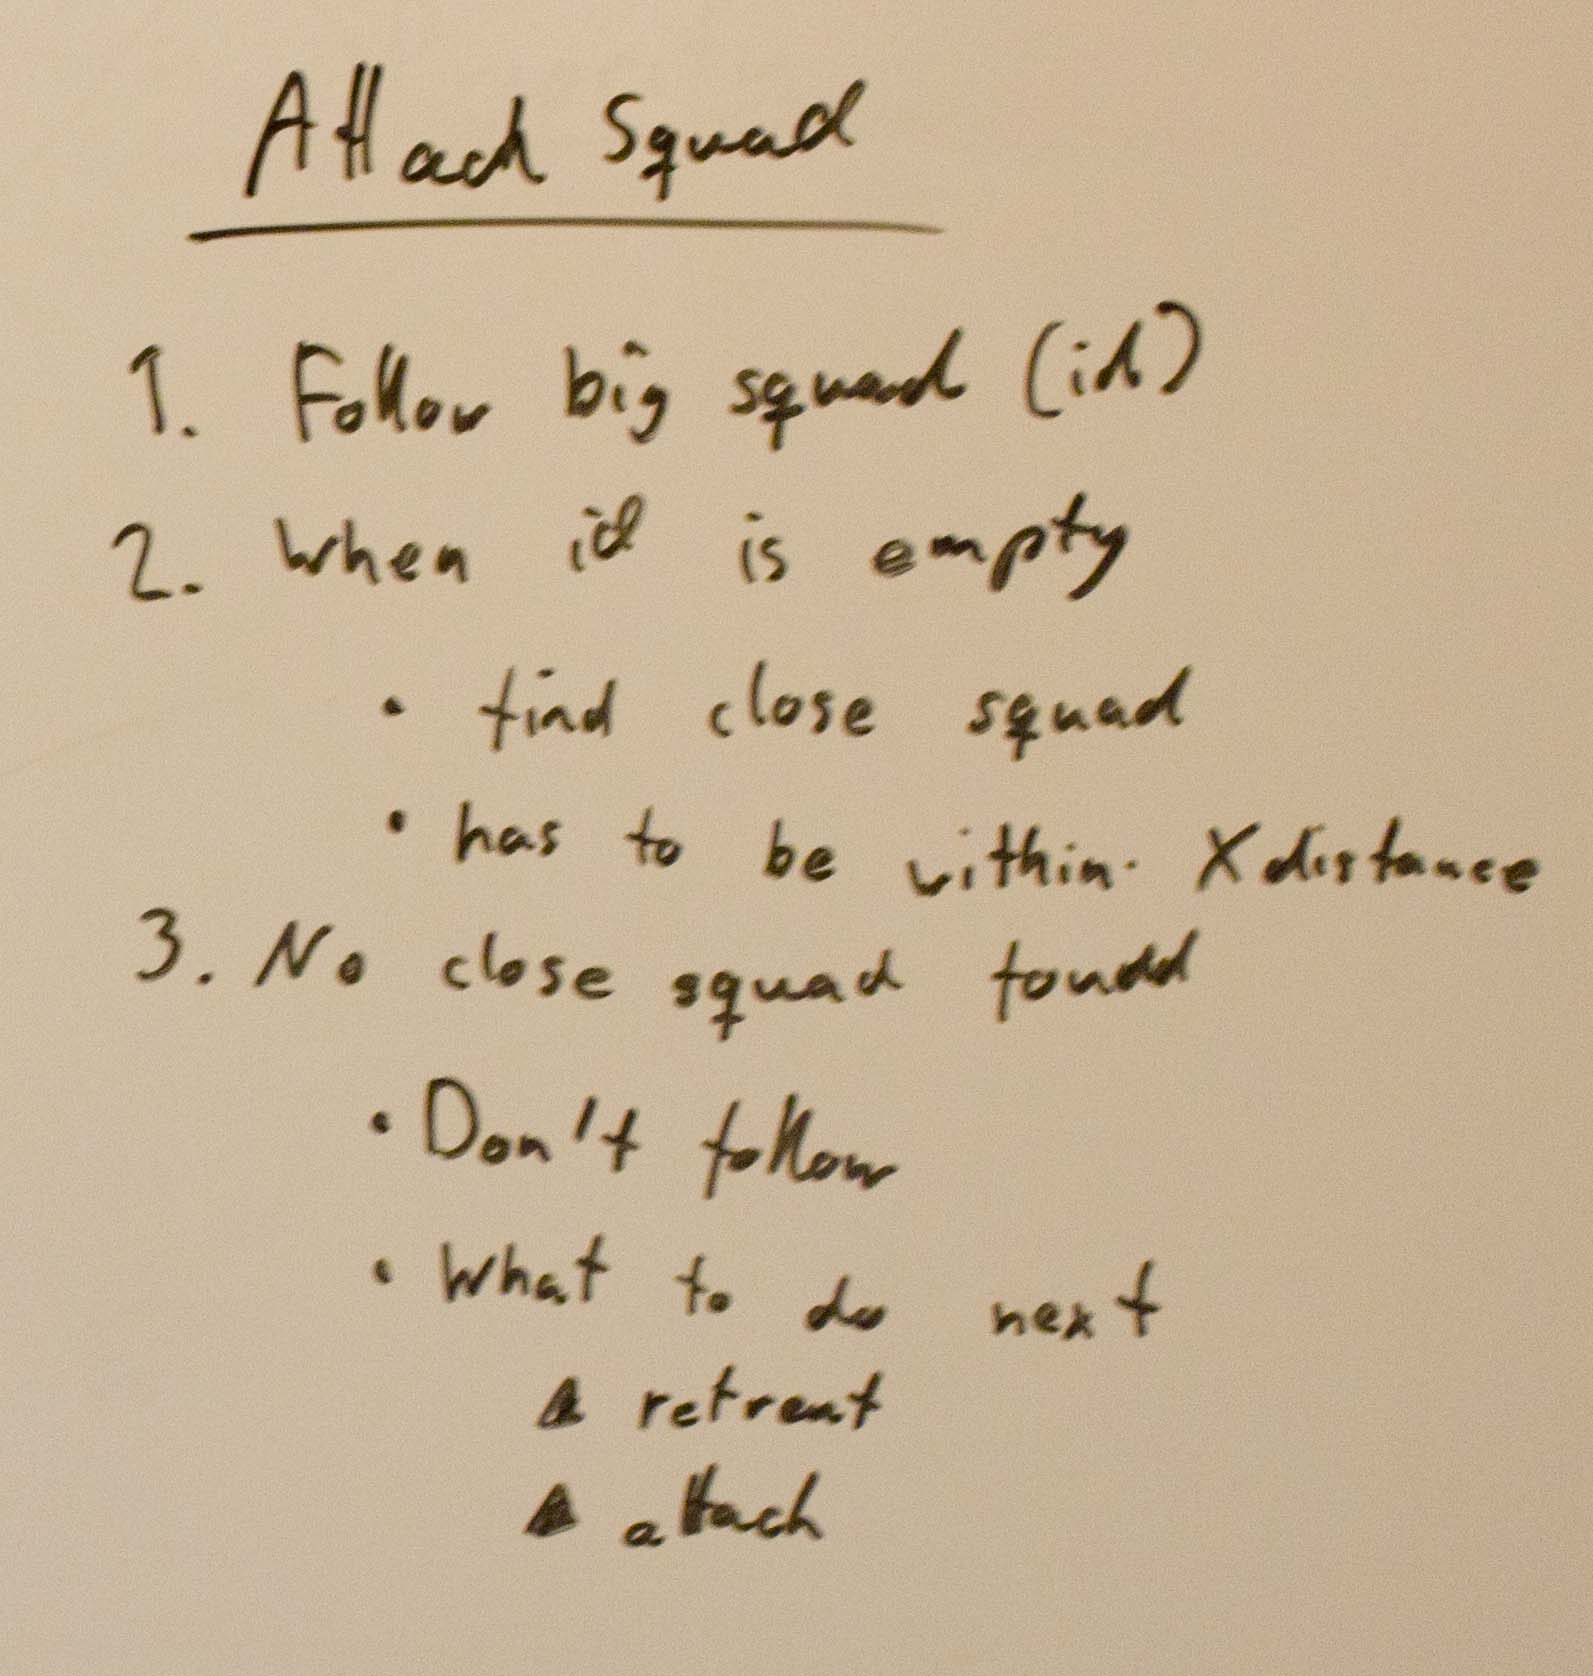 Attack Squad
1. Follow big squad (id)
2. When id is empty
• find close squad
• has to be within X distance
3. No close squad found
• Don't follow
• What to do next
▲ retreat
▲ attack